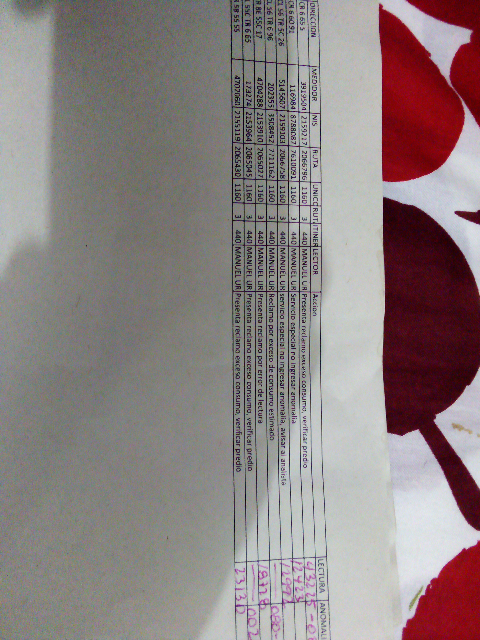 DIRECCION MEDIDOR NIS RUTA UNICO RUT ITINER LECTOR Accion LECTURA ANOMAL
CR 6 65 5 3919504 2159217 2066796 1160 3 440 MANUEL UR Presenta reclamo exceso consumo, verificar predio 43225
CR 6 60 91 116984 8788087 7610091 1160 3 440 MANUEL UR Servicio especial no ingresar anomalia 12423
CL 56 TR 5C 26 5145607 2159203 2066758 1160 3 440 MANUEL UR servicio especial no ingresar anomalia, avisar al analista
CL 56 TR 6 96 202355 3508452 7711162 1160 3 440 MANUEL UR Reclamo por exceso de consumo estimado
R 8E 55C 17 4704288 2153910 2065027 1160 3 440 MANUEL UR Presenta reclamo por error de lectura
55C TR 6 65 173274 2153964 2065045 1160 3 440 MANUEL UR Presenta reclamo exceso consumo, verificar predio
9B 55 55 4707068 2155119 2065430 1160 3 440 MANUEL UR Presenta reclamo exceso consumo, verificar predio 23130